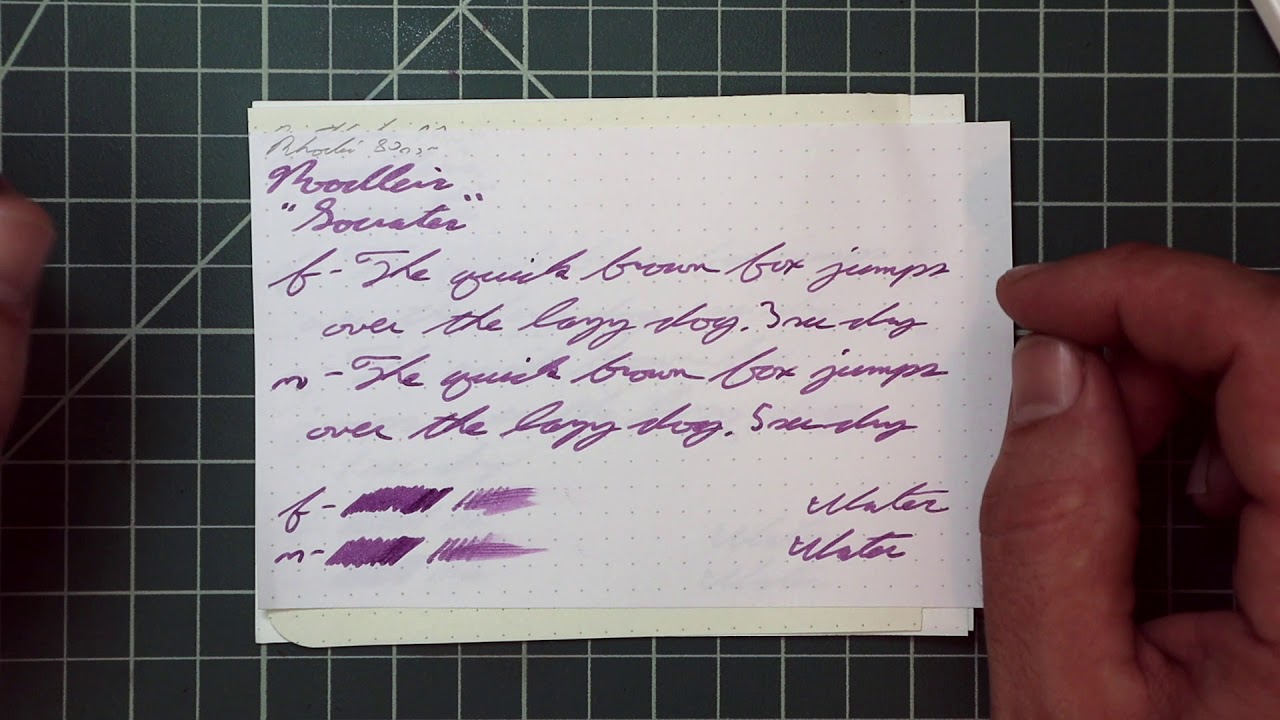 Rhodia 80gsm
Noodler's
"Socrates"
f - The quick brown fox jumps
over the lazy dog. 3 sec dry
m - The quick brown fox jumps
over the lazy dog. 5 sec dry
f - Water
m - Water